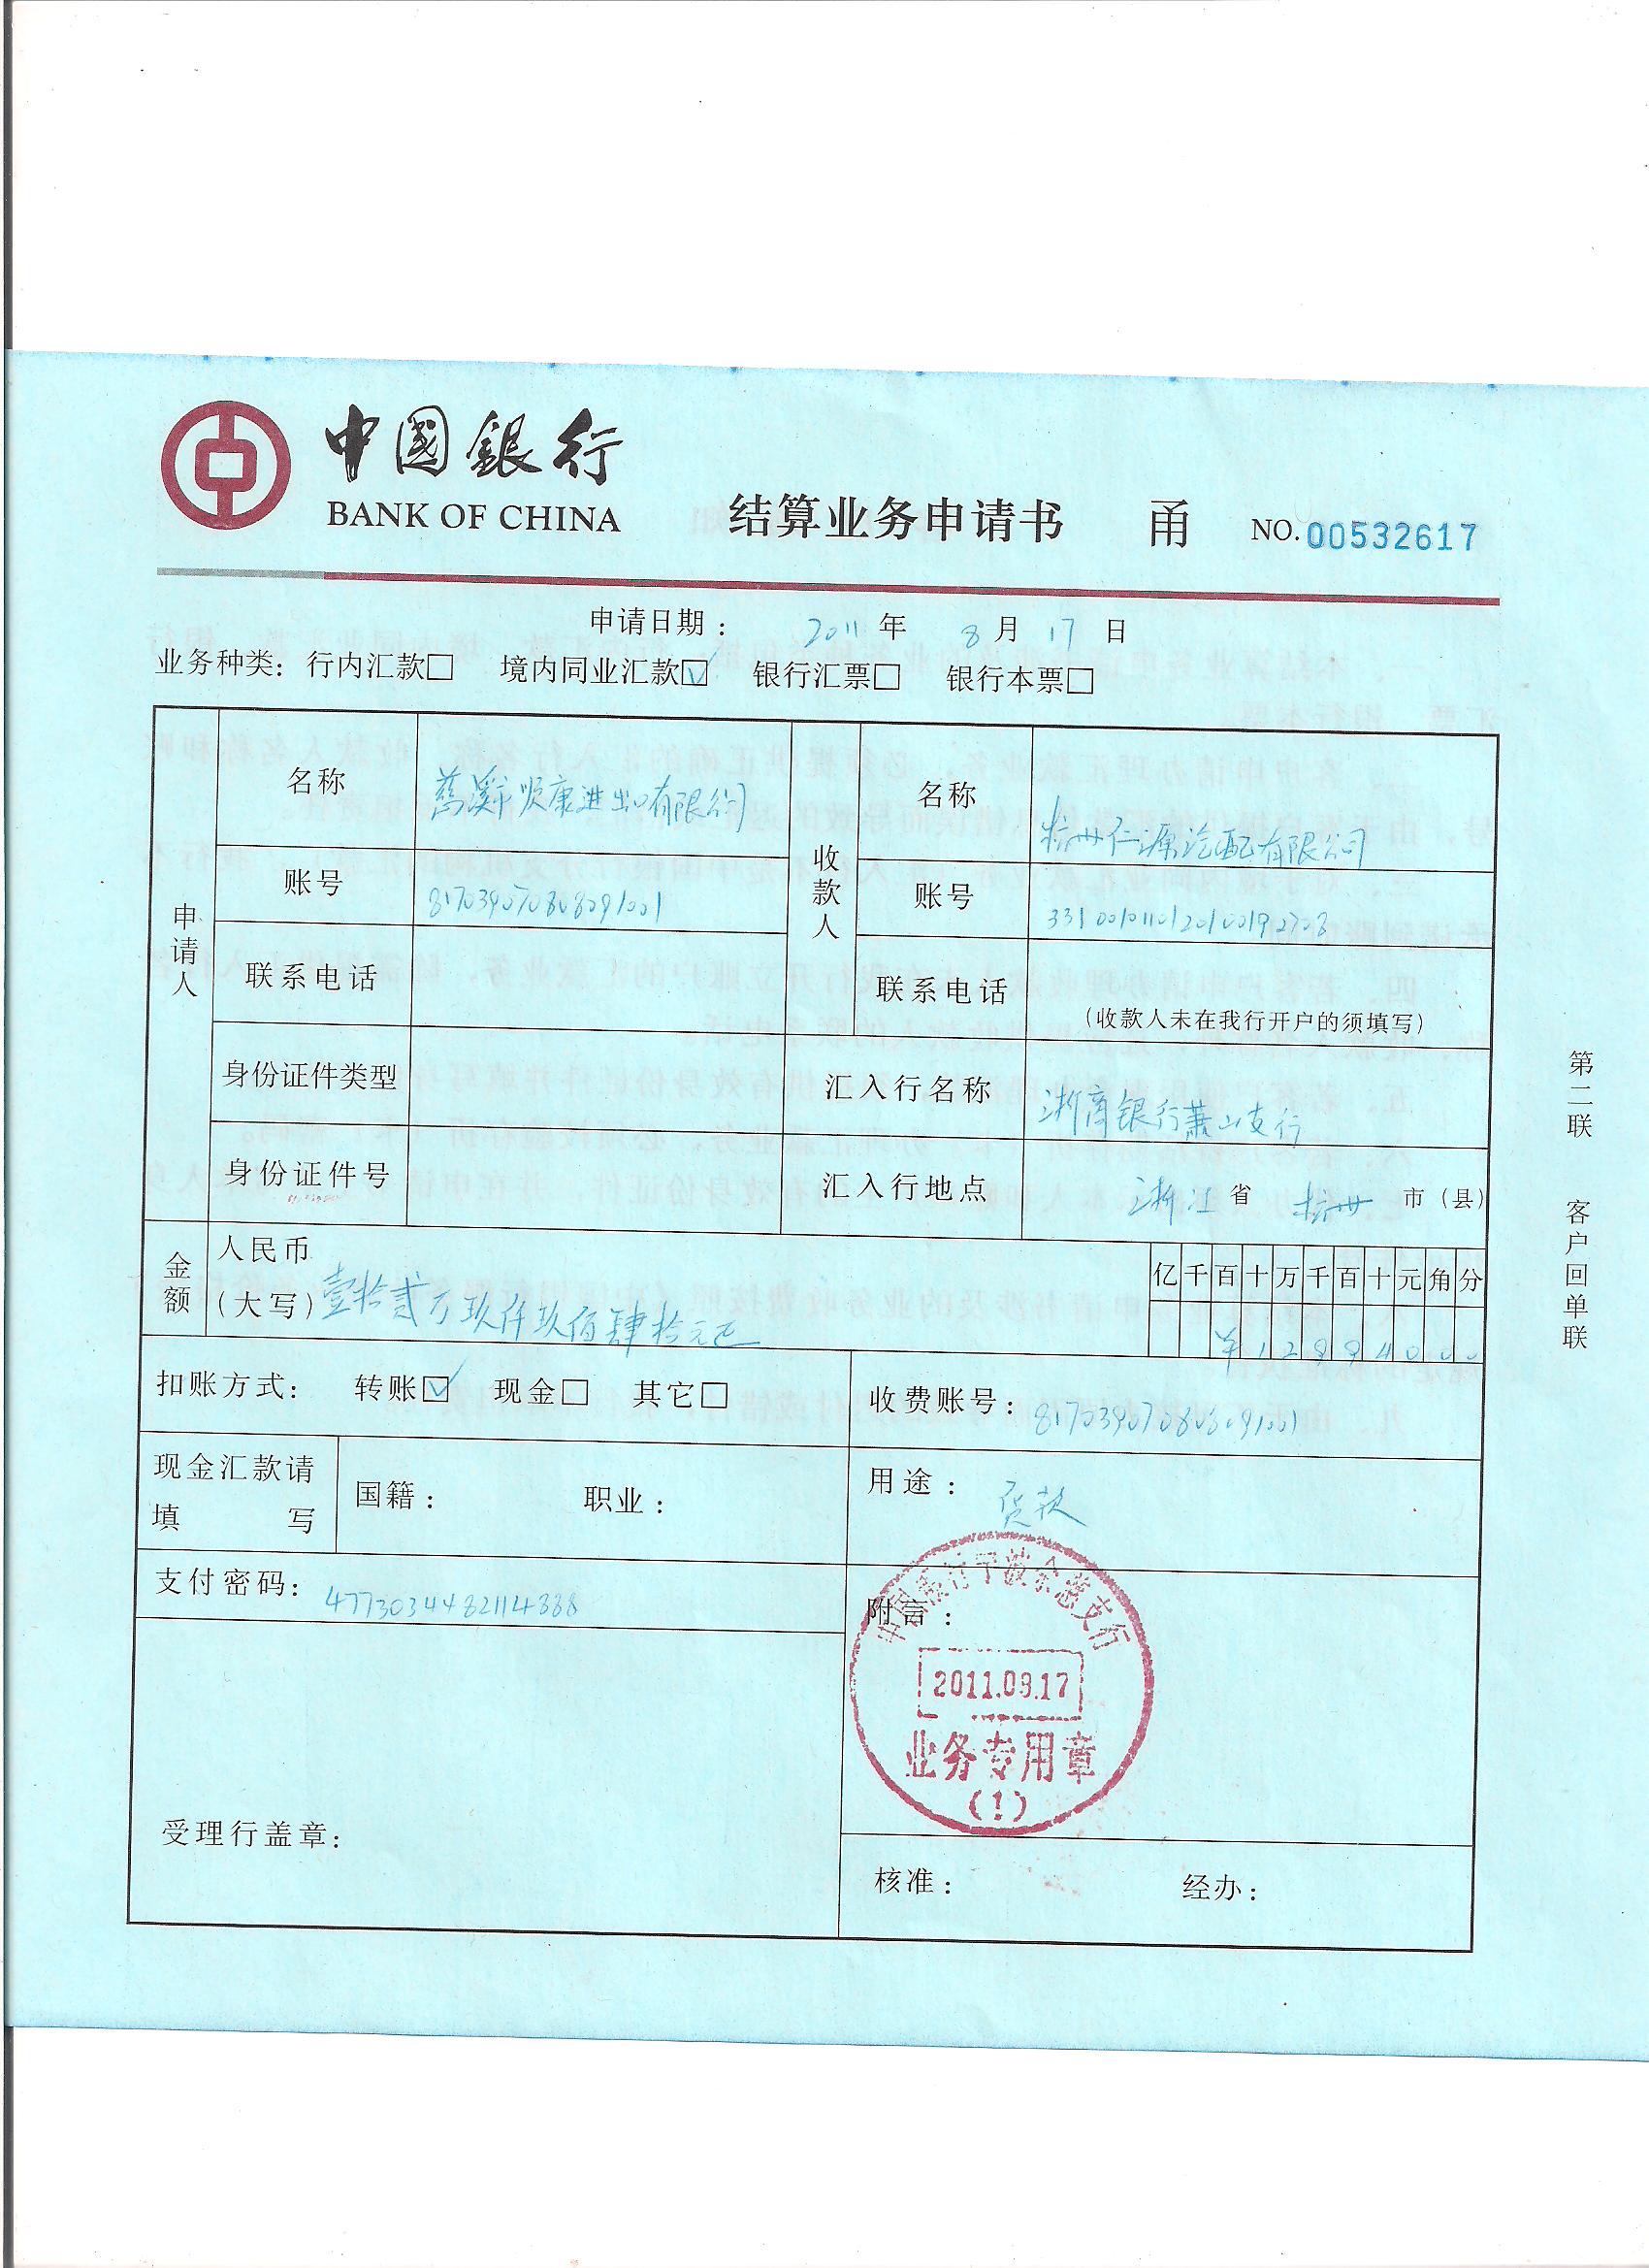 中國銀行
BANK OF CHINA
结算业务申请书 甬 NO.00532617
申请日期： 2011 年 8 月 17 日
业务种类：行内汇款□ 境内同业汇款☑ 银行汇票□ 银行本票□
申请人
名称 慈溪市顺康进出口有限公司
收款人
名称 杭州仁源汽配有限公司
账号 817039070808091001
账号 3310010110120100192703
联系电话
联系电话 （收款人未在我行开户的须填写）
身份证件类型
汇入行名称 浙商银行萧山支行
身份证件号
汇入行地点 浙江 省 杭州 市（县）
金额
人民币
（大写）壹拾贰万玖仟玖佰肆拾元正
亿千百十万千百十元角分
¥12994000
扣账方式： 转账☑ 现金□ 其它□
收费账号：817039070808091001
现金汇款请
填 写
国籍： 职业：
用途： 货款
支付密码：4773034482114888
附言：
中国银行宁波余慈支行
2011.08.17
业务专用章
(1)
受理行盖章：
核准： 经办：
第二联 客户回单联